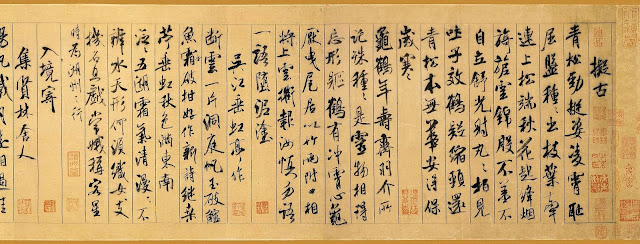 擬古
青松勁挺姿凌霄恥
屈盤種々出枝葉牽
連上松端秋花起絳烟
旖旎雲錦殷不羞不
自立舒光射丸々柏見
吐子效鶴疑縮頸還
青松本無華安得保
歲寒
龜鶴年壽齊羽介所
託殊種々是靈物相得
忘形軀鶴有冲霄心龜
厭曳尾居以竹兩附口相
將上雲衢報汝慎勿語
一語墮泥塗
吳江垂虹亭作
斷雲一片洞庭帆玉破鱸
魚霜破柑好作新詩繼桑
苧垂虹秋色滿東南
泛々五湖霜氣清漫々不
辨水天形何須織女支
機石且戲嫦娥稱客星
時為湖州之行
入境寄
集賢林舍人
揚帆載月遠相過佳